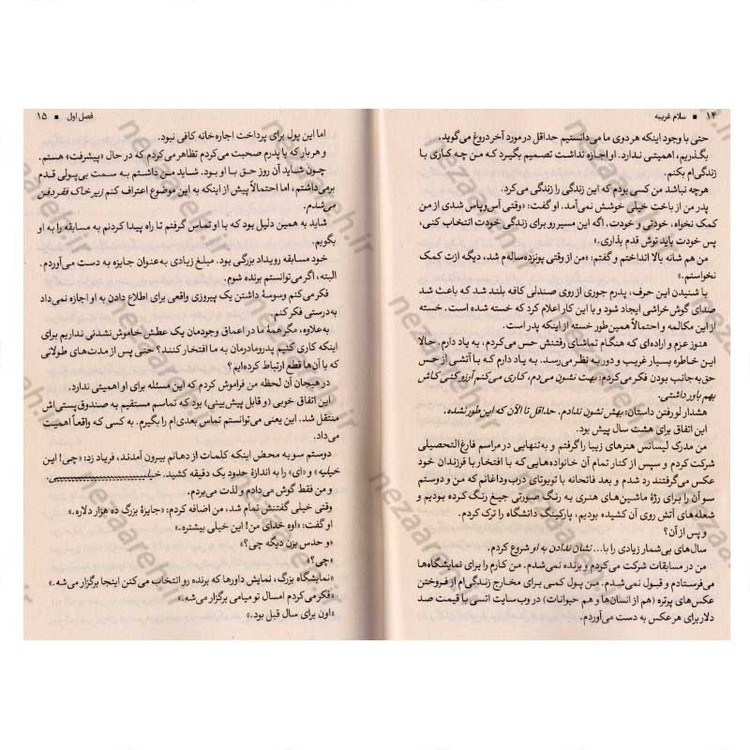 ۱۴ ■ سلام غریبه
حتی با وجود اینکه هر دوی ما می‌دانستیم حداقل در مورد آخر دروغ می‌گوید.
بگذریم، اهمیتی ندارد. او اجازه نداشت تصمیم بگیرد که من چه کاری با
زندگی‌ام بکنم.
هرچه نباشد من کسی بودم که این زندگی را زندگی می‌کرد.
پدر من از باخت خیلی خوشش نمی‌آمد. او گفت: «وقتی آس‌وپاس شدی از من
کمک نخواه. خودتی و خودت. اگه این مسیر رو برای زندگی خودت انتخاب کنی،
پس خودت باید توش قدم بذاری.»
من هم شانه بالا انداختم و گفتم: «من از وقتی پونزده‌ساله‌م شد، دیگه ازت کمک
نخواستم.»
با شنیدن این حرف، پدرم جوری از روی صندلی کافه بلند شد که باعث شد
صدای گوش خراشی ایجاد شود و با این کار اعلام کرد که خسته شده است. خسته
از این مکالمه و احتمالاً همین‌طور خسته از اینکه پدر است.
هنوز عزم و اراده‌ای که هنگام تماشای رفتنش حس می‌کردم، به یاد دارم. حالا
این خاطره بسیار غریب و دور به نظر می‌رسد. به یاد دارم که با آتشی از حس
حق‌به‌جانب بودن فکر می‌کردم: بهت نشون می‌دم. کاری می‌کنم آرزو کنی کاش
بهم باور داشتی.
هشدار لو رفتن داستان: بهش نشون ندادم. حداقل تا الآن که این طور نشده.
این اتفاق برای هشت سال پیش بود.
من مدرک لیسانس هنرهای زیبا را گرفتم و به‌تنهایی در مراسم فارغ‌التحصیلی
شرکت کردم و سپس از کنار تمام آن خانواده‌هایی که با افتخار با فرزندان خود
عکس می‌گرفتند رد شدم و بعد فاتحانه با تویوتای درب‌وداغانم که من و دوستم
سو آن را برای رژهٔ ماشین‌های هنری به رنگ صورتی جیغ رنگ کرده بودیم و
شعله‌های آتش روی آن کشیده بودیم، پارکینگ دانشگاه را ترک کردم.
و پس از آن؟
سال‌های بی‌شمار زیادی را با... نشان ندادن به او شروع کردم.
من در مسابقات شرکت می‌کردم و برنده نمی‌شدم. من کارم را برای نمایشگاه‌ها
می‌فرستادم و قبول نمی‌شدم. من پول کمی برای مخارج زندگی‌ام از فروختن
عکس‌های پرتره (هم از انسان‌ها و هم حیوانات) در وب‌سایت اتسی با قیمت صد
دلار برای هر عکس به دست می‌آوردم.
فصل اول ■ ۱۵
اما این پول برای پرداخت اجاره‌خانه کافی نبود.
و هر بار که با پدرم صحبت می‌کردم تظاهر می‌کردم که در حال «پیشرفت» هستم.
چون شاید آن روز حق با او بود. شاید من داشتم به سمت بی‌پولی قدم
برمی‌داشتم، اما احتمالاً پیش از اینکه به این موضوع اعتراف کنم زیر خاک دفن
می‌شدم.
شاید به همین دلیل بود که با او تماس گرفتم تا راه پیدا کردنم به مسابقه را به او
بگویم.
خود مسابقه رویداد بزرگی بود. مبلغ زیادی به‌عنوان جایزه به دست می‌آوردم.
البته، اگر می‌توانستم برنده شوم.
فکر می‌کنم وسوسهٔ داشتن یک پیروزی واقعی برای اطلاع دادن به او اجازه نمی‌داد
به‌درستی فکر کنم.
به‌علاوه، مگر همهٔ ما در اعماق وجودمان یک عطش خاموش‌نشدنی نداریم برای
اینکه کاری کنیم پدرومادرمان به ما افتخار کنند؟ حتی پس از مدت‌های طولانی
که با آن‌ها قطع ارتباط کرده‌ایم؟
در هیجان آن لحظه من فراموش کردم که این مسئله برای او اهمیتی ندارد.
این اتفاق خوبی (و قابل پیش‌بینی) بود که تماسم مستقیم به صندوق پستی‌اش
منتقل شد. این یعنی می‌توانستم تماس بعدی‌ام را بگیرم. به کسی که واقعاً اهمیت
می‌داد.
دوستم سو به محض اینکه کلمات از دهانم بیرون آمدند، فریاد زد: «چی! این
خیلیه» و «ای» را به اندازهٔ حدود یک دقیقه کشید.
و من فقط گوش می‌دادم و لذت می‌بردم.
وقتی خیلی گفتنش تمام شد، من اضافه کردم: «جایزهٔ بزرگ ده هزار دلاره.»
او گفت: «اوه خدای من! این خیلی بیشتره.»
«و حدس بزن دیگه چی؟»
«چی؟»
«نمایشگاه بزرگ، نمایش داورها که برنده رو انتخاب می‌کنن اینجا برگزار می‌شه.»
«فکر می‌کردم امسال تو میامی برگزار می‌شه.»
«اون برای سال قبل بود.»
nezaareh.ir